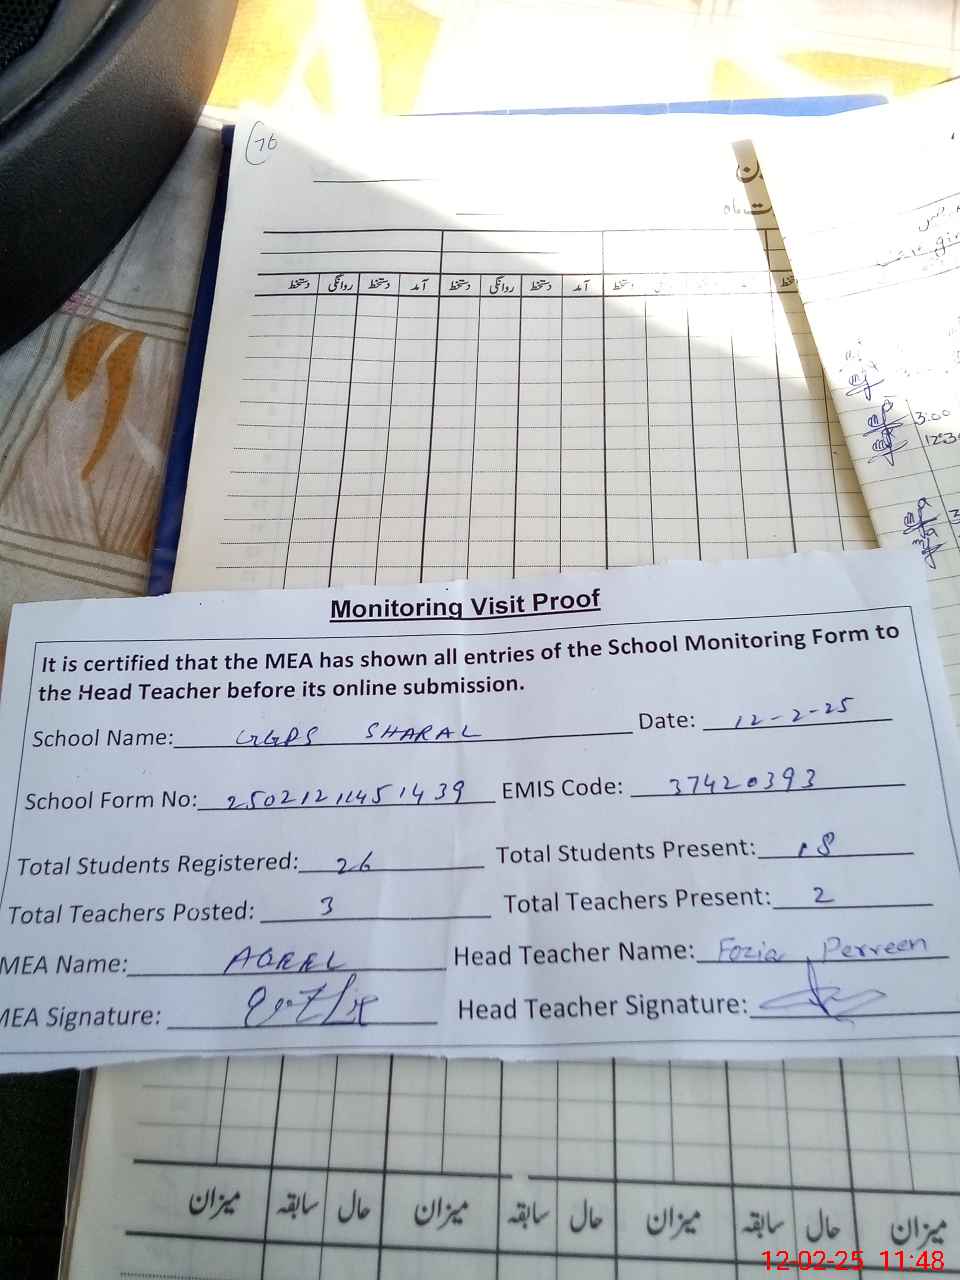 76
دستخط روانگی دستخط آمد دستخط روانگی دستخط آمد دستخط
3:00
Monitoring Visit Proof
It is certified that the MEA has shown all entries of the School Monitoring Form to
the Head Teacher before its online submission.
School Name: GGPS SHARAL Date: 12-2-25
School Form No: EMIS Code: 37420393
Total Students Registered: 26 Total Students Present: 18
Total Teachers Posted: 3 Total Teachers Present: 2
MEA Name: Head Teacher Name: Fozia Perveen
MEA Signature: Head Teacher Signature:
میزان سابقہ حال میزان سابقہ حال میزان سابقہ حال میزان
12-02-25 11:48